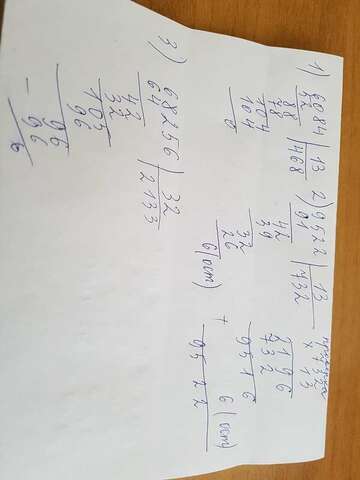 1) 6084 | 13
52 | 468
88
78
104
104
0
2) 9522 | 13
91 | 732
42
39
32
26
6 (ост)
проверка
732
× 13
2196
732
9516
+ 6 (ост)
9522
3) 68256 | 32
64 | 2133
42
32
105
96
- 96
96
0